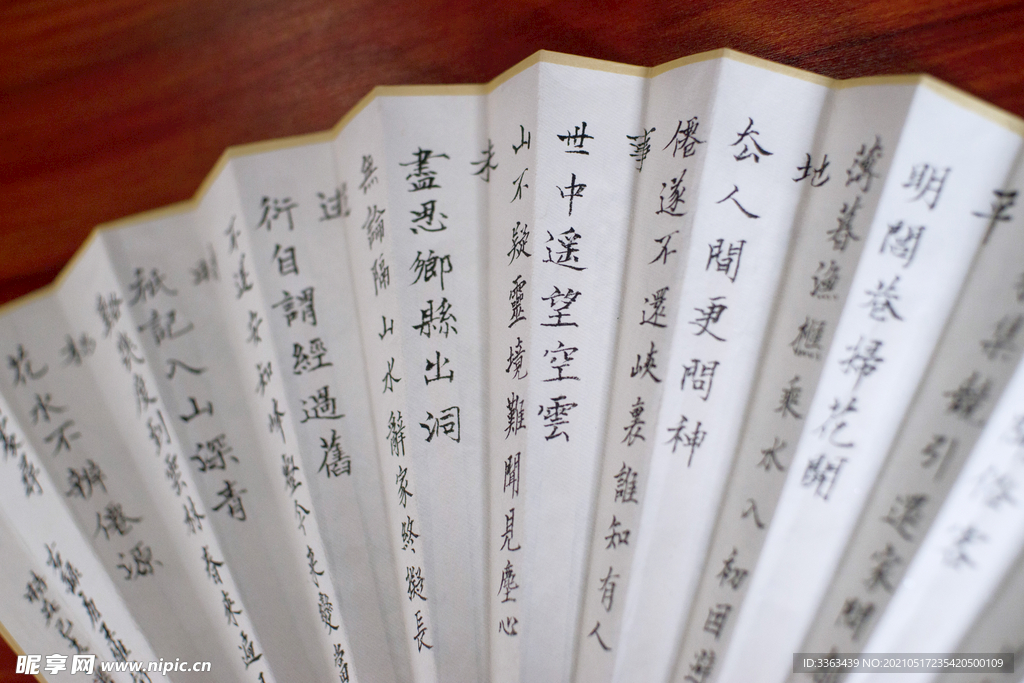 俗客
集競引還家問
平
明閭巷掃花開
薄暮漁樵乘水入初因避
地
去人間更問神
僊遂不還峽裏誰知有人
事
世中遙望空雲
山不疑靈境難聞見塵心
未
盡思鄉縣出洞
無論隔山水辭家終擬長
遊
衍自謂經過舊
不迷安知峰壑今來變當
時
祗記入山深青
谿幾度到雲林春來遍
桃
花水不辨僊源
處尋
昵享网 www.nipic.cn
ID:3363439 NO:20210517235420500109